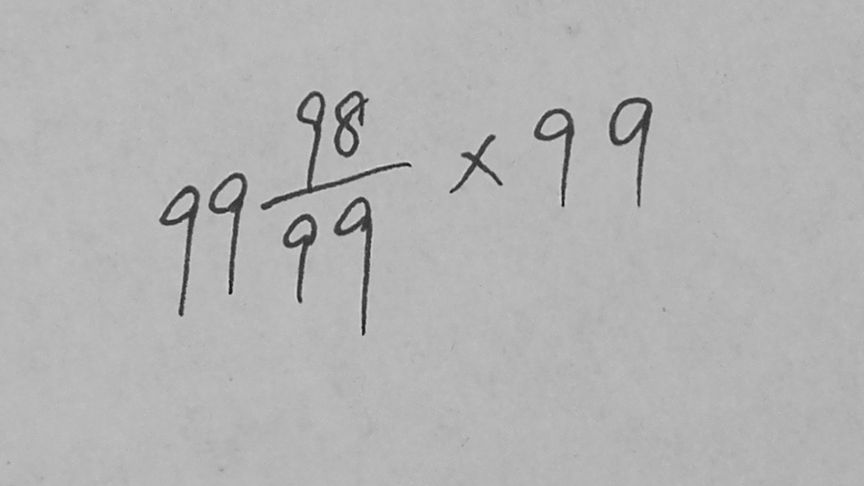 99 98/99 × 99